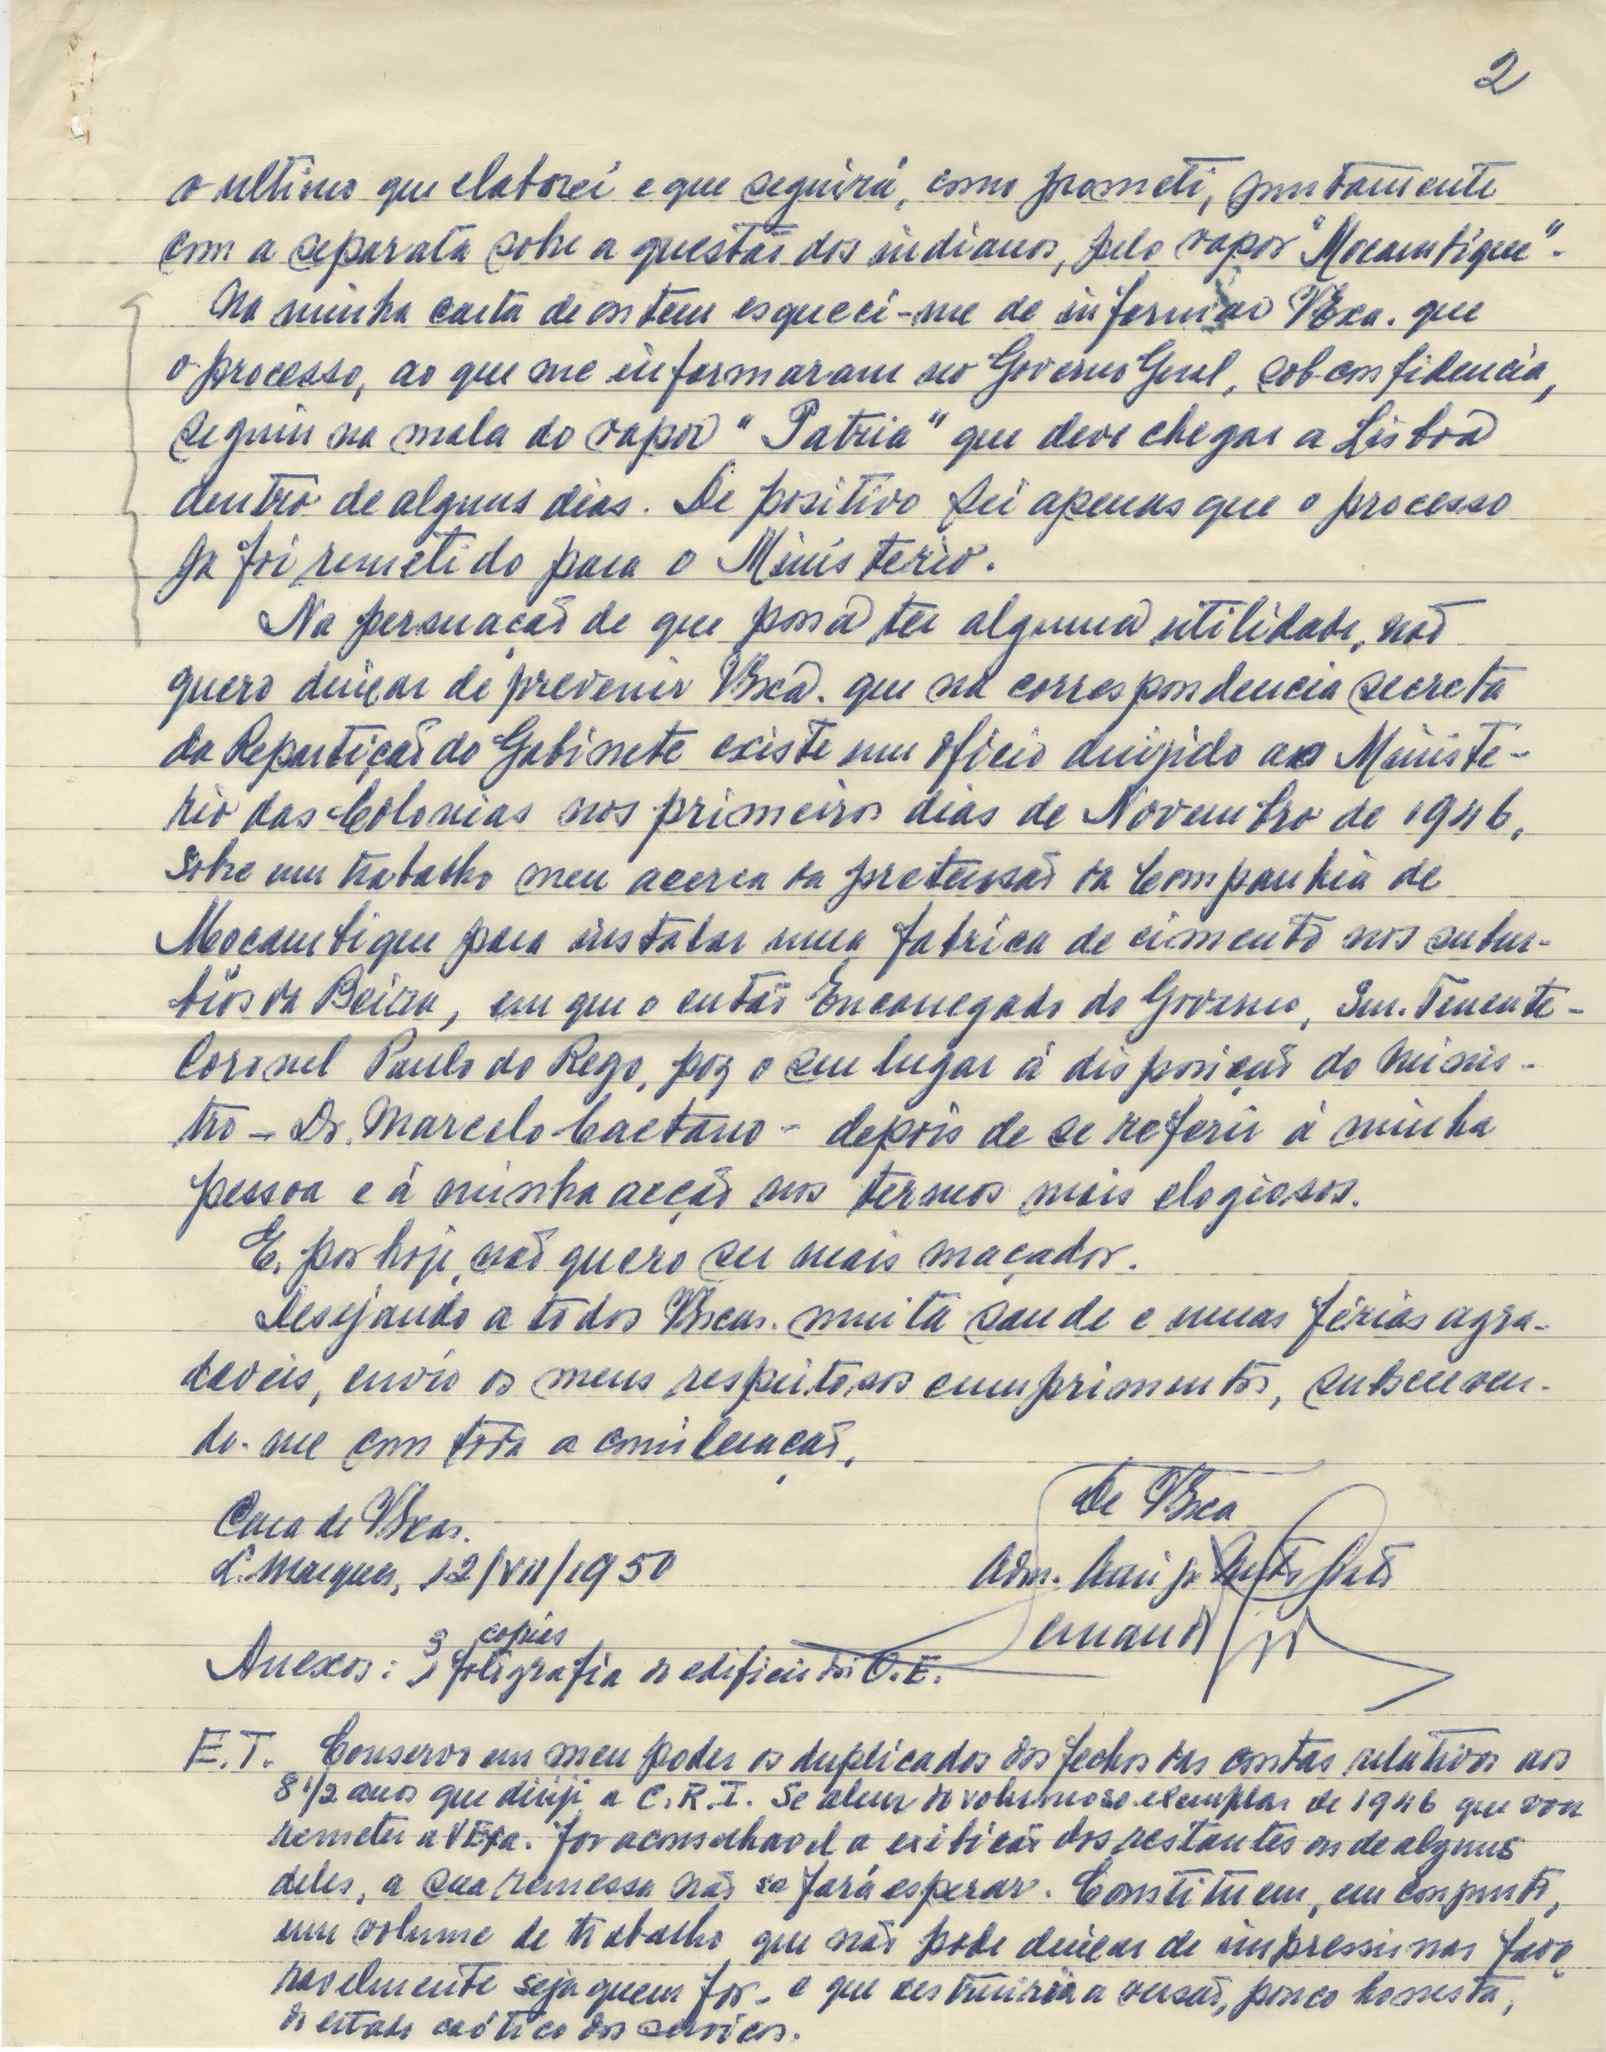 2
o ultimo que elaborei e que seguirá, como prometi, juntamente
com a separata sobre a questão dos indianos, pelo vapor "Mocambique".
Na minha carta de ontem esqueci-me de informar VExa. que
o processo, ao que me informaram no Governo Geral, sob confidencia,
seguiu na mala do vapor "Patria" que deve chegar a Lisboa
dentro de alguns dias. De positivo sei apenas que o processo
ja foi remetido para o Ministerio.
Na persuação de que possa ter alguma utilidade, não
quero deixar de prevenir VExa. que na correspondencia secreta
da Repartição do Gabinete existe um oficio dirigido ao Ministe-
rio das Colonias nos primeiros dias de Novembro de 1946,
sobre um trabalho meu acerca da pretensão da Companhia de
Mocambique para instalar uma fabrica de cimento nos subur-
bios da Beira, em que o então Encarregado do Governo, Snr. Tenente-
Coronel Paulo do Rego, poz o seu lugar á disposição do Minis-
tro - Dr. Marcelo Caetano - depois de se referir á minha
pessoa e á minha acção nos termos mais elogiosos.
E, por hoje, não quero ser mais maçador.
Desejando a todos VExcas. muita saude e umas férias agra-
daveis, envio os meus respeitosos cumprimentos, subscreven-
do-me com toda a consideração,
De VExca
Casa de VExas.
L. Marques, 12/VII/1950
Adm.
Anexos: 3 copias fotografia do edificio dos O.E.
E.T. Conservo em meu poder os duplicados dos fechos das contas relativos aos
8 1/2 anos que dirigi a C.R.I. Se alem do volumoso exemplar de 1946 que vou
remeter a VExa. for aconselhavel a exibicão dos restantes ou de alguns
deles, a sua remessa não se fará esperar. Constituem, em conjunto,
um volume de trabalho que não pode deixar de impressionar favo
ravelmente seja quem for - e que destruiria a versão, pouco honesta,
do estado caótico dos serviços.